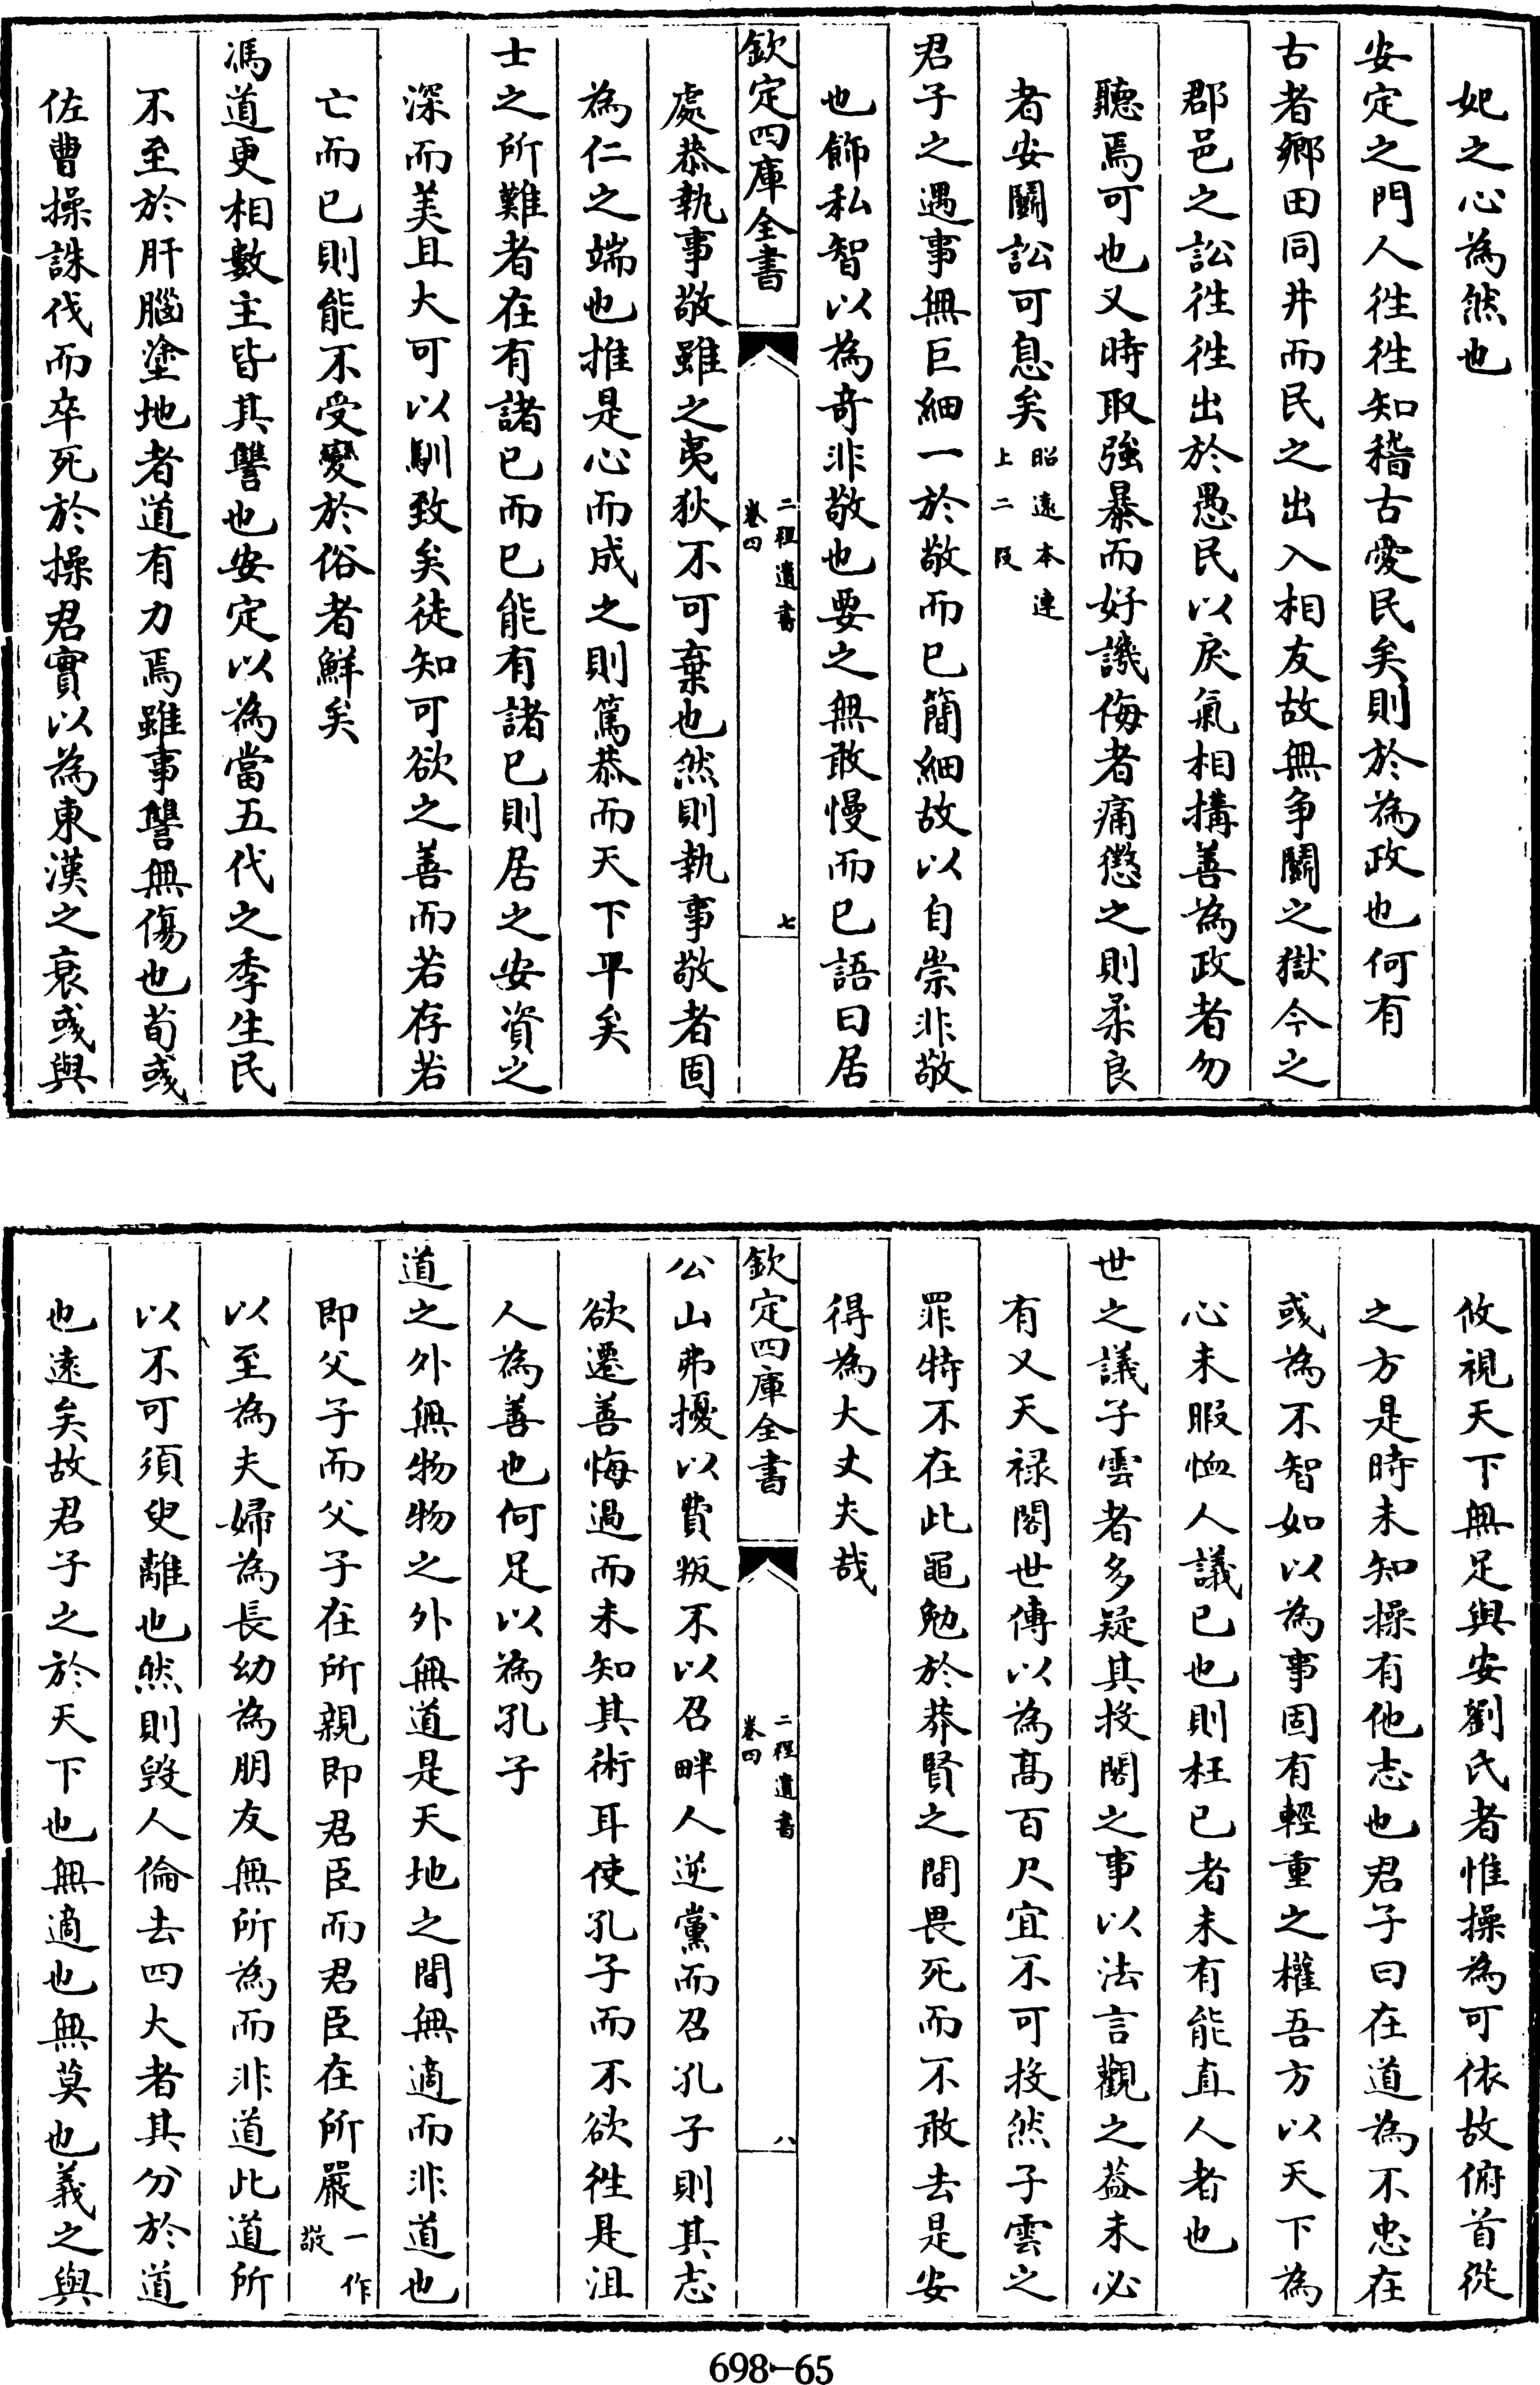 妃之心為然也
安定之門人徃徃知稽古愛民矣則於為政也何有
古者鄉田同井而民之出入相友故無争鬭之獄今之
郡邑之訟徃徃出於愚民以戾氣相搆善為政者勿
聽焉可也又時取強暴而好譏侮者痛懲之則柔良
者安鬭訟可息矣昭遠本連上二段
君子之遇事無巨細一於敬而已簡細故以自崇非敬
也飾私智以為竒非敬也要之無敢慢而已語曰居
欽定四庫全書
二程遺書
卷四
七
處恭執事敬雖之夷狄不可棄也然則執事敬者固
為仁之端也推是心而成之則篤恭而天下平矣
士之所難者在有諸已而已能有諸已則居之安資之
深而美且大可以馴致矣徒知可欲之善而若存若
亡而已則能不受變於俗者鮮矣
馮道更相數主皆其讐也安定以為當五代之季生民
不至於肝腦塗地者道有力焉雖事讐無傷也荀彧
佐曹操誅伐而卒死於操君實以為東漢之衰彧與
攸視天下無足與安劉氏者惟操為可依故俯首從
之方是時未知操有他志也君子曰在道為不忠在
或為不智如以為事固有輕重之權吾方以天下為
心未暇恤人議已也則枉已者未有能直人者也
世之議子雲者多疑其投閣之事以法言觀之葢未必
有又天禄閣世傳以為髙百尺宜不可投然子雲之
罪特不在此黽勉於莽賢之間畏死而不敢去是安
得為大丈夫哉
欽定四庫全書
二程遺書
卷四
八
公山弗擾以費叛不以召畔人逆黨而召孔子則其志
欲遷善悔過而未知其術耳使孔子而不欲徃是沮
人為善也何足以為孔子
道之外無物物之外無道是天地之間無適而非道也
即父子而父子在所親即君臣而君臣在所嚴一作敬
以至為夫婦為長幼為朋友無所為而非道此道所
以不可須臾離也然則毀人倫去四大者其分於道
也遠矣故君子之於天下也無適也無莫也義之與
698-65